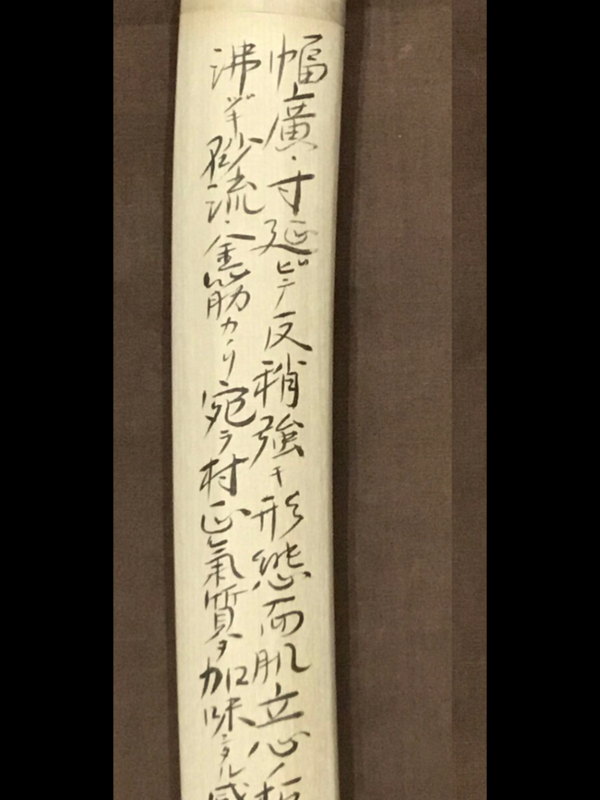 幅廣・寸延ビテ反稍強キ形態而肌立心ノ板
沸ヅキ砂流・金筋カカリ宛ラ村正氣質ヲ加味シタル感